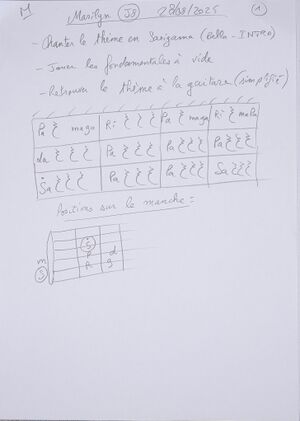 M Marilyn J8 28/08/2025 1
- Chanter le thème en Sargama (Bella - INTRO)
- Jouer les fondamentales à vide
- Retrouver le thème à la guitare (simplifié)
Pa maga Ri Pa maga Ri maPa
da Pa Pa Pa
Sa Pa Pa Sa
Positions sur le manche :
S
P d
m R g
S